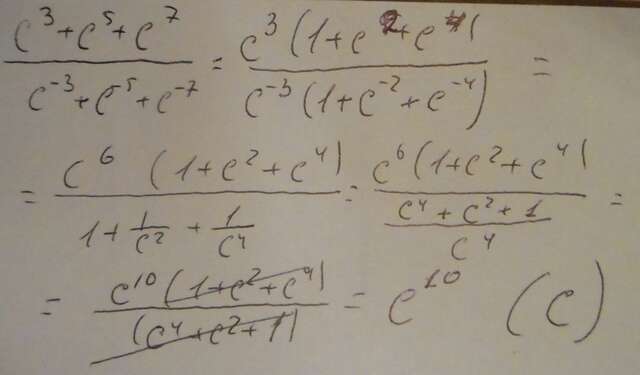 (c³+c⁵+c⁷)/(c⁻³+c⁻⁵+c⁻⁷) = c³(1+c²+c⁴)/c⁻³(1+c⁻²+c⁻⁴) =
= c⁶ (1+c²+c⁴)/(1+1/c²+1/c⁴) = c⁶(1+c²+c⁴)/((c⁴+c²+1)/c⁴) =
= c¹⁰(1+c²+c⁴)/(c⁴+c²+1) = c¹⁰ (c)